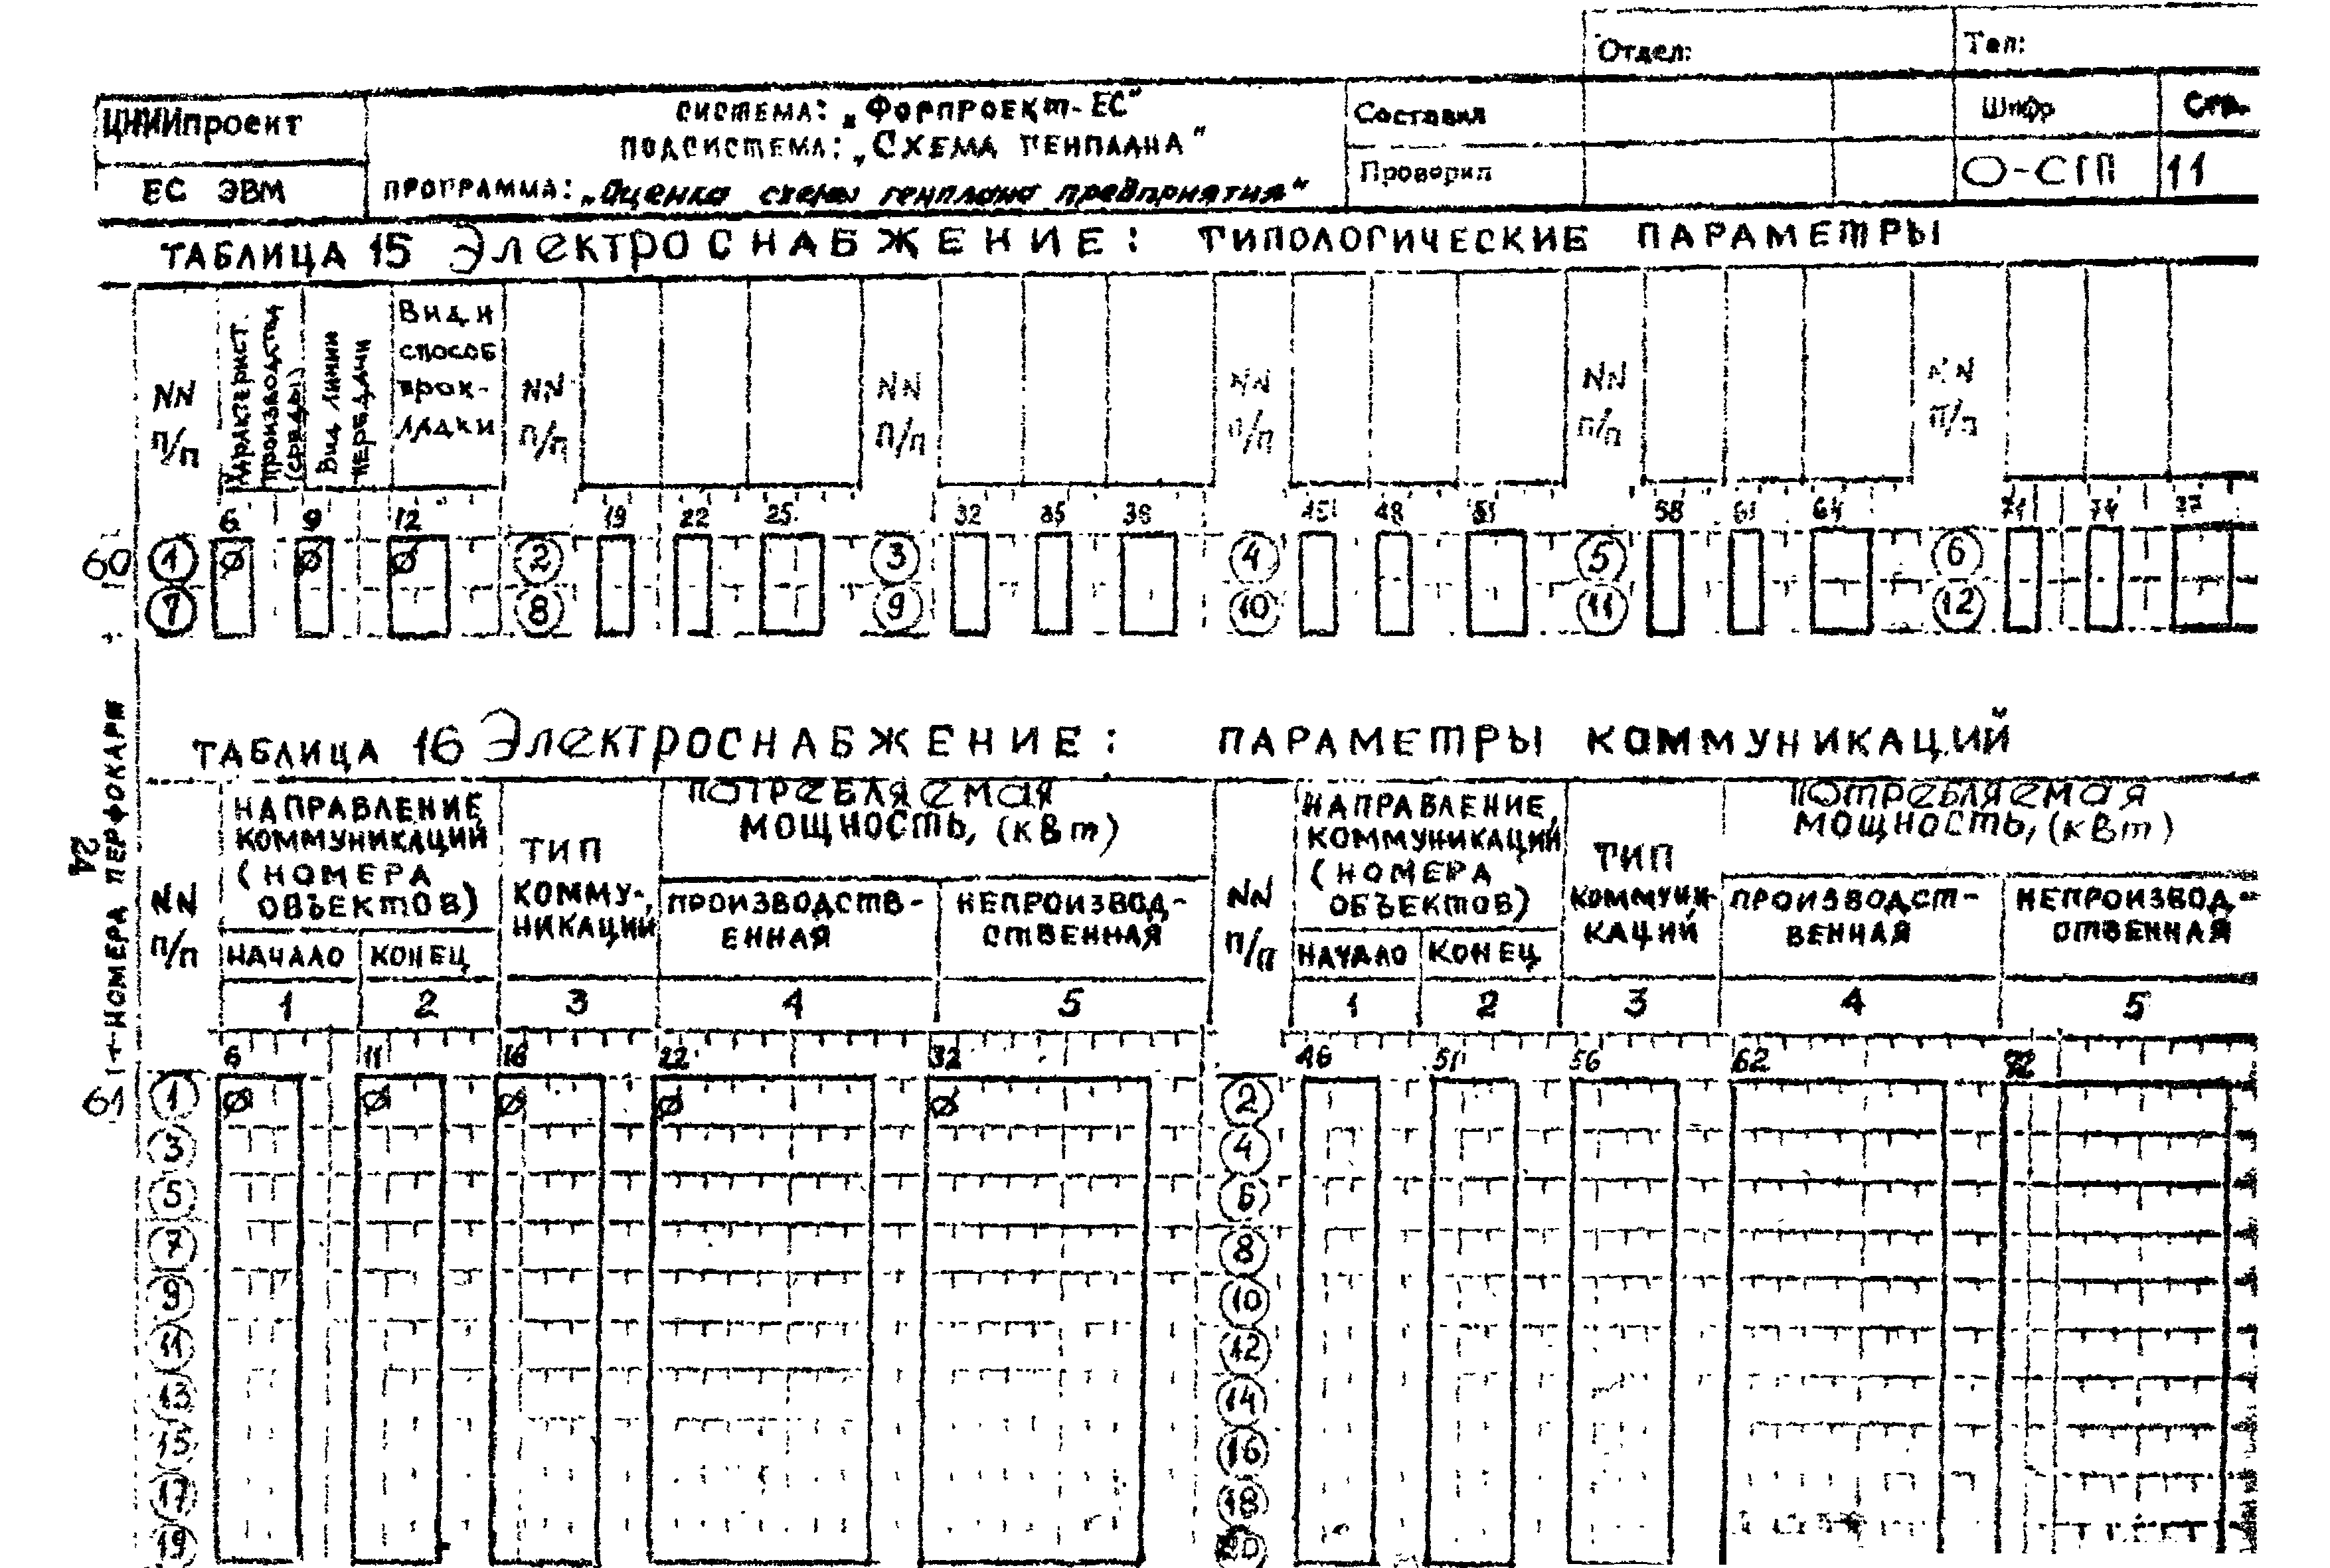 Отдел: Тел:
ЦНИИпроект СИСТЕМА: „ФОРПРОЕКТ-ЕС" Составил Шифр Стр.
ПОДСИСТЕМА: „СХЕМА ГЕНПЛАНА"
ЕС ЭВМ ПРОГРАММА: „Оценка схемы генплана предприятия" Проверил О-СГП 11
ТАБЛИЦА 15 ЭЛЕКТРОСНАБЖЕНИЕ: ТИПОЛОГИЧЕСКИЕ ПАРАМЕТРЫ
NN п/п
Характерист. производства (среды)
Вид линии передачи
Вид и
способ
прок-
ладки
NN п/п
NN п/п
NN п/п
NN п/п
NN п/п
6 9 12 19 22 25 32 35 38 45 48 51 58 61 64 71 74 77
60 1 Ø Ø Ø 2 3 4 5 6
7 8 9 10 11 12
ТАБЛИЦА 16 ЭЛЕКТРОСНАБЖЕНИЕ: ПАРАМЕТРЫ КОММУНИКАЦИЙ
24
НОМЕРА ПЕРФОКАРТ
NN п/п
НАПРАВЛЕНИЕ
КОММУНИКАЦИЙ
(НОМЕРА
ОБЪЕКТОВ)
НАЧАЛО КОНЕЦ
ТИП
КОММУ-
НИКАЦИЙ
ПОТРЕБЛЯЕМАЯ
МОЩНОСТЬ, (кВт)
ПРОИЗВОДСТВ-
ЕННАЯ
НЕПРОИЗВОД-
СТВЕННАЯ
NN п/п
НАПРАВЛЕНИЕ
КОММУНИКАЦИЙ
(НОМЕРА
ОБЪЕКТОВ)
НАЧАЛО КОНЕЦ
ТИП
КОММУНИ-
КАЦИЙ
ПОТРЕБЛЯЕМАЯ
МОЩНОСТЬ, (кВт)
ПРОИЗВОДСТ-
ВЕННАЯ
НЕПРОИЗВОД-
СТВЕННАЯ
1 2 3 4 5 1 2 3 4 5
6 11 16 22 32 46 51 56 62 72
61 1 Ø Ø Ø Ø Ø 2
3 4
5 6
7 8
9 10
11 12
13 14
15 16
17 18
19 20